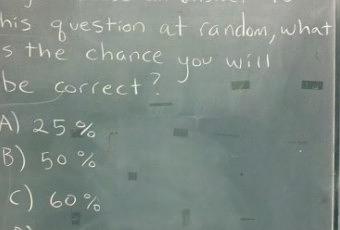 his question at random, what
s the chance you will
be correct?
A) 25%
B) 50%
C) 60%